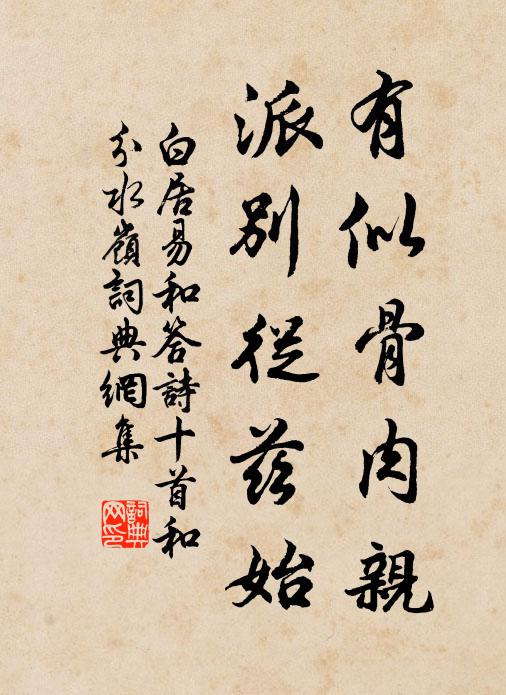 有似骨肉親
派別從茲始
白居易和答詩十首和
分水嶺詞典網集
詞典
网印